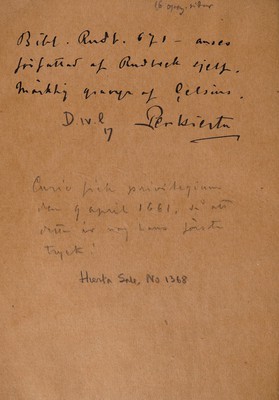 16 opag. sidor
Bibl. Rudb. 671 – anses
författad af Rudbeck sjelf.
Märklig gravyr af Celsius.
D. IV. l
17
Per Hierta
Curio fick privilegium
den 9 april 1661, så att
detta är nog hans första
tryck!
Hierta Sale, No 1368